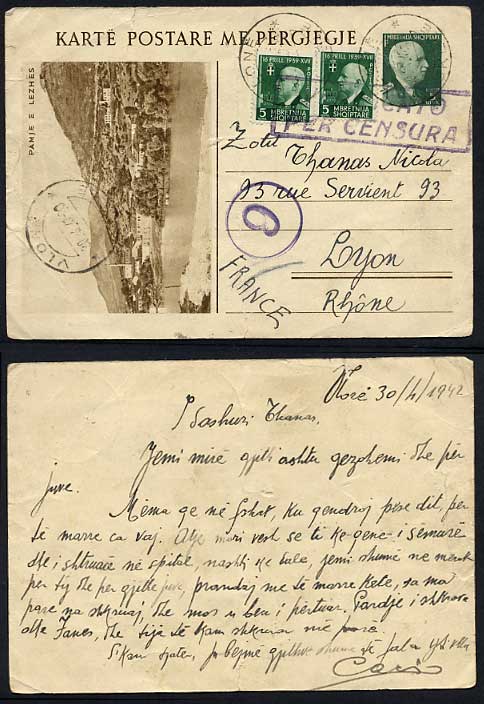 KARTË POSTARE ME PËRGJEGJE
PAMJE E LEZHES
16 PRILL 1939-XVII
5 MBRETNIJA SHQIPTARE
16 PRILL 1939-XVII
5 MBRETNIJA SHQIPTARE
MBRETNIJA SHQIPTARE
PER CENSURA
VLONË
6
Zoti Thanas Nicola
93 rue Servient 93
Lyon
Rhône
FRANCE
Vlorë 30/4/1942
I dashuri Thanas,
Jemi mirë gjith ashtu gezohemi dhe për
juve.
Mëma qe në fshat, ku qendroj pese dit, per
të marre ca vaj. Atje mori vesh se ti ke qene i semurë
dhe i shtruarë në spital, jemi shumë ne merak
per ty dhe per gjithe juve, prandaj me të marre kete, sa ma
pare na shkruaj, dhe mos u bëu i përtuar.
dhe Janes, dhe